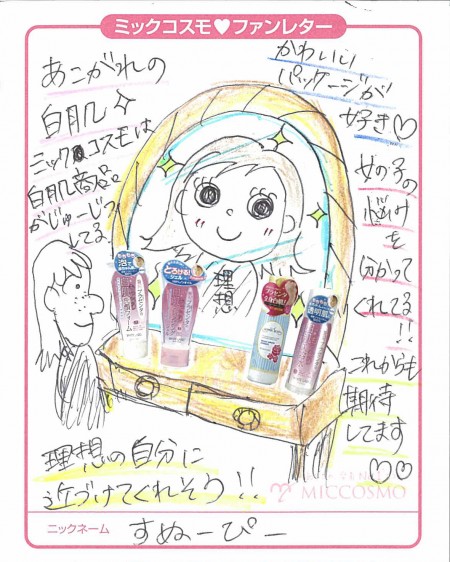 ミックコスモ♥ファンレター
あこがれの
白肌
ミックコスモは
白肌商品
がじゅーじつ
してる
かわいい
パッケージが
好き♡
女の子の
悩みを
分かって
くれてる
!!
これからも
期待
してます
♡♡
理想
泡で
とろける!
プラセンタ
透明肌
理想の自分に
近づけてくれそう!!
MICCOSMO
ニックネーム
すぬーぴー